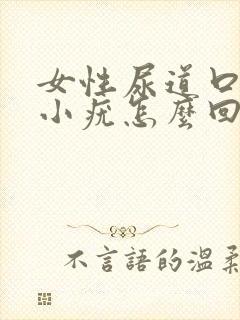 女性尿道口
小疣怎麼回
不言語的溫柔